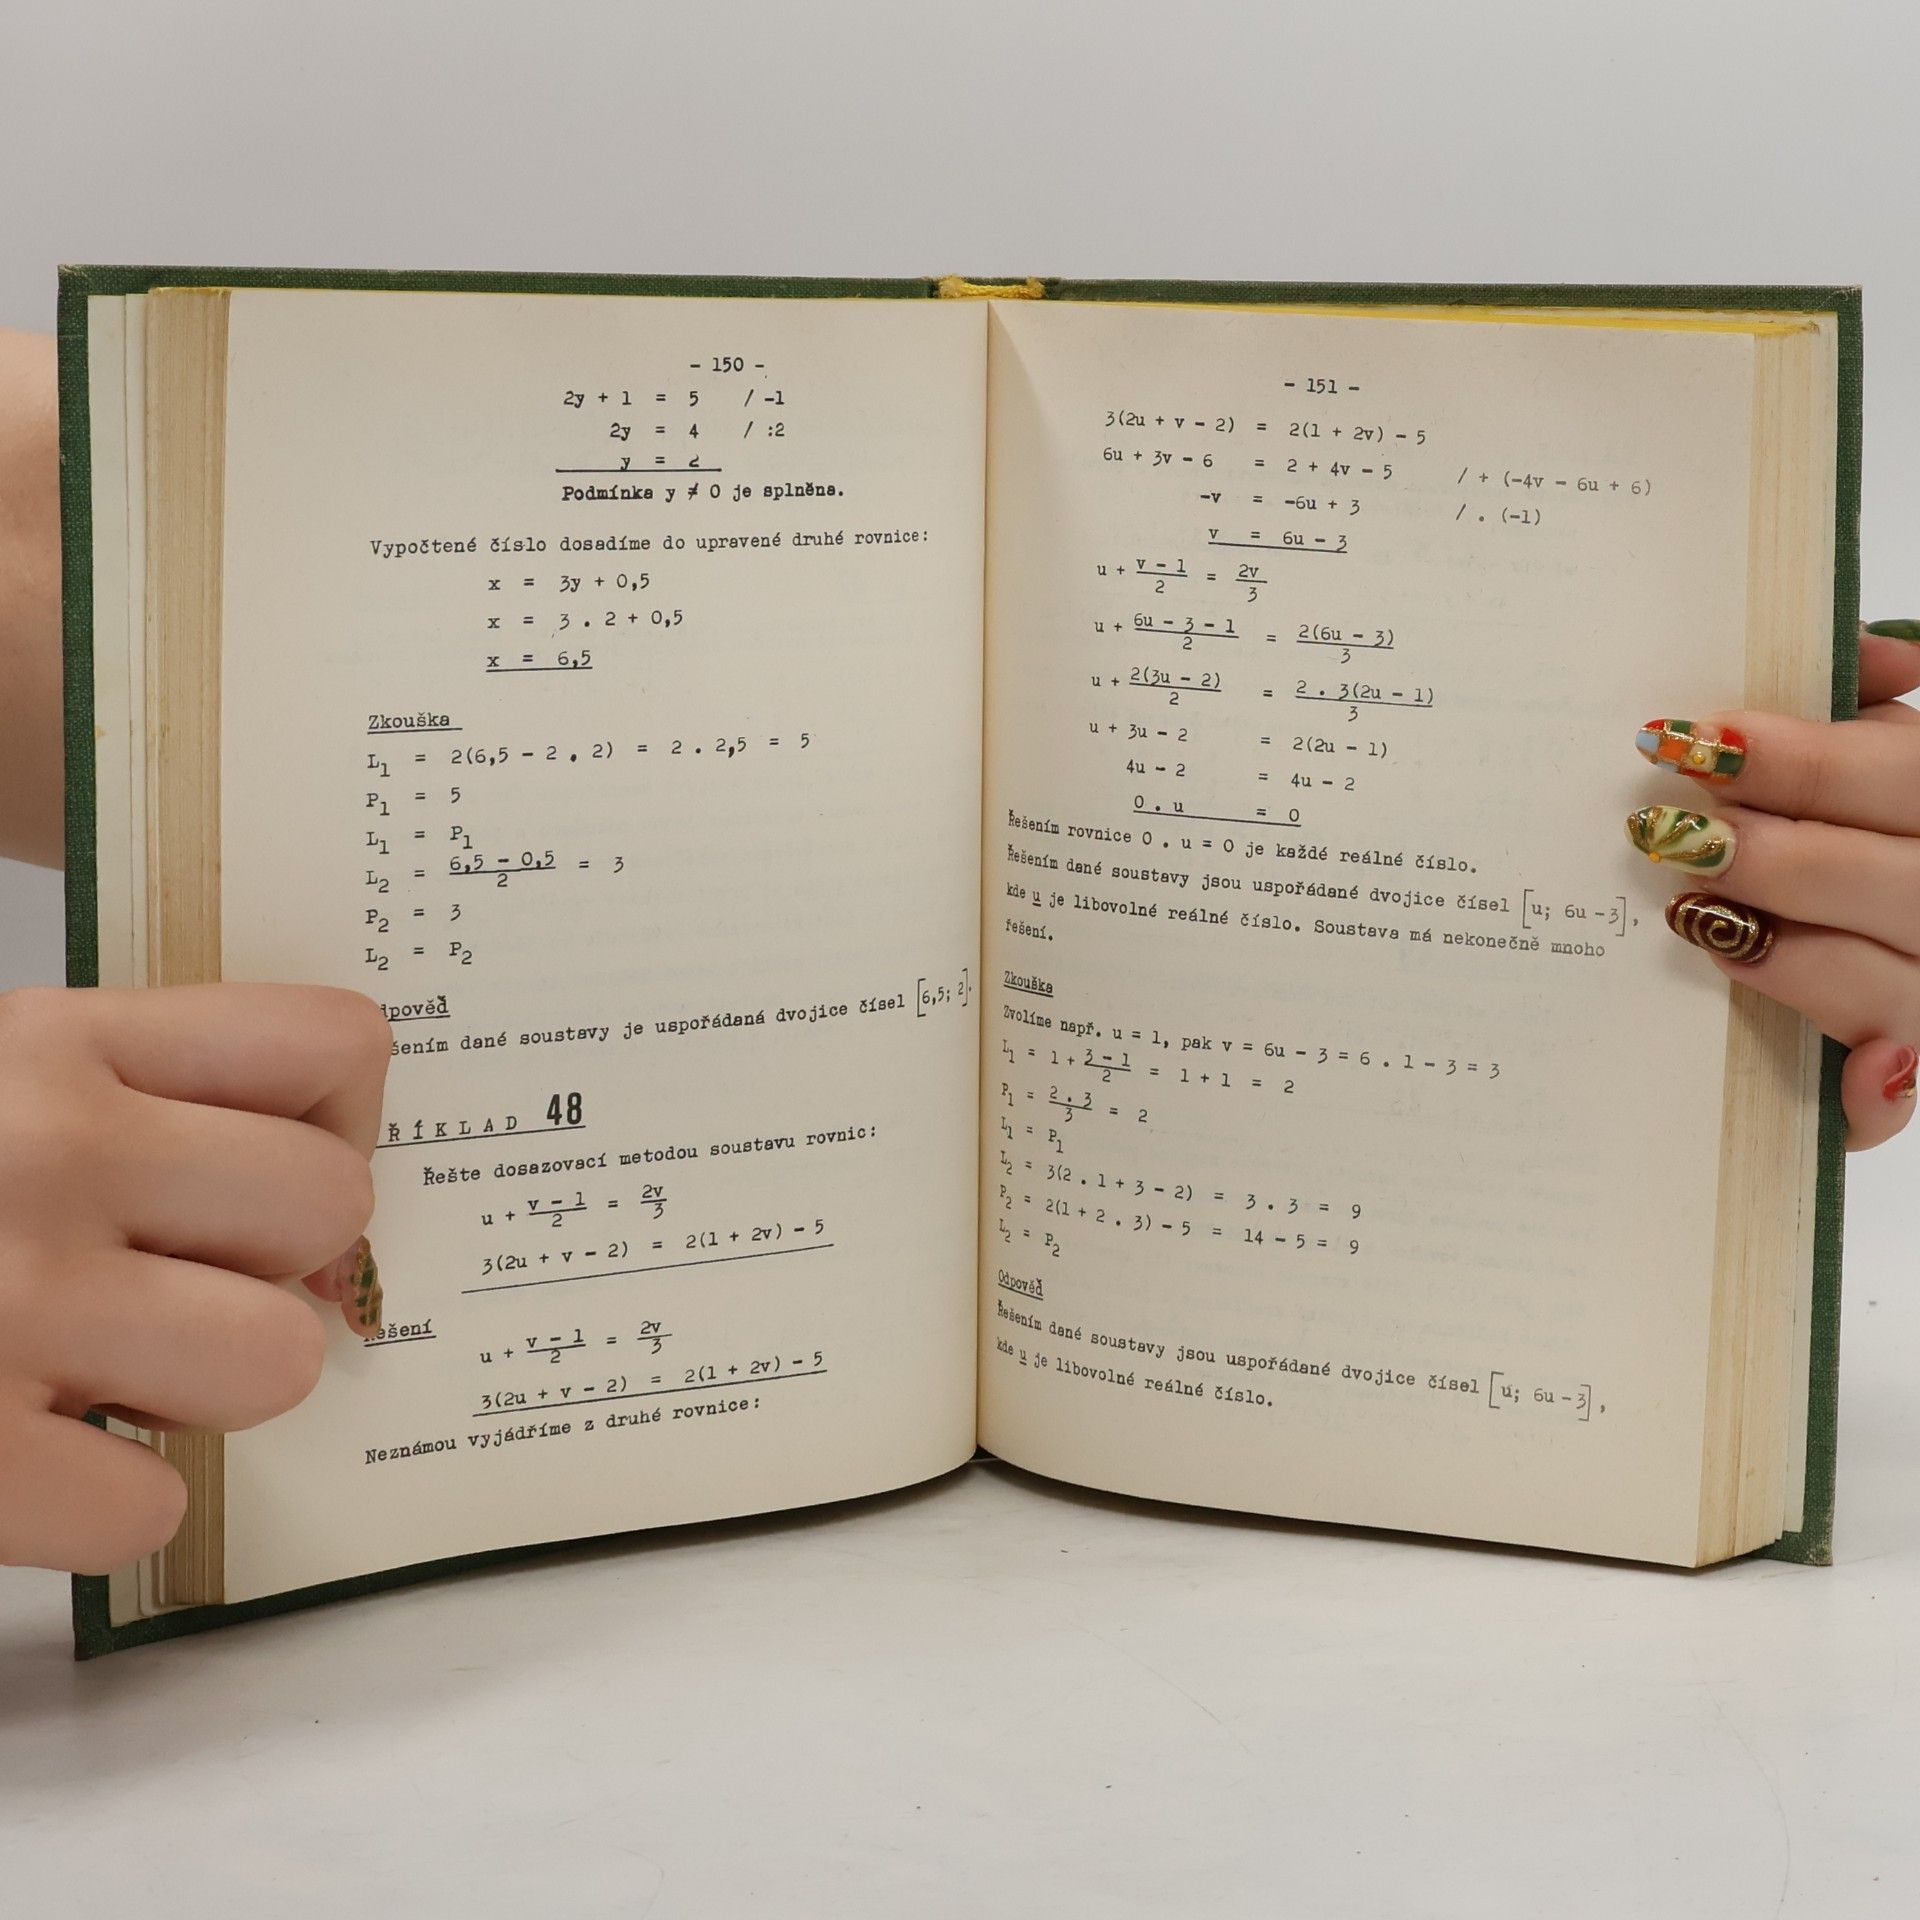 - 150 -
2y + 1 = 5 / -1
2y = 4 / :2
y = 2
Podmínka y ≠ 0 je splněna.
Vypočtené číslo dosadíme do upravené druhé rovnice:
x = 3y + 0,5
x = 3 . 2 + 0,5
x = 6,5
Zkouška
L1 = 2(6,5 - 2 . 2) = 2 . 2,5 = 5
P1 = 5
L1 = P1
L2 = (6,5 - 0,5)/2 = 3
P2 = 3
L2 = P2
dpověď
šením dané soustavy je uspořádaná dvojice čísel [6,5; 2].
ŘÍKLAD 48
Řešte dosazovací metodou soustavu rovnic:
u + (v - 1)/2 = 2v/3
3(2u + v - 2) = 2(1 + 2v) - 5
ešení
u + (v - 1)/2 = 2v/3
3(2u + v - 2) = 2(1 + 2v) - 5
Neznámou vyjádříme z druhé rovnice:
- 151 -
3(2u + v - 2) = 2(1 + 2v) - 5
6u + 3v - 6 = 2 + 4v - 5 / + (-4v - 6u + 6)
-v = -6u + 3 / . (-1)
v = 6u - 3
u + (v - 1)/2 = 2v/3
u + (6u - 3 - 1)/2 = 2(6u - 3)/3
u + 2(3u - 2)/2 = 2 . 3(2u - 1)/3
u + 3u - 2 = 2(2u - 1)
4u - 2 = 4u - 2
0 . u = 0
Řešením rovnice 0 . u = 0 je každé reálné číslo.
Řešením dané soustavy jsou uspořádané dvojice čísel [u; 6u - 3],
kde u je libovolné reálné číslo. Soustava má nekonečně mnoho
řešení.
Zkouška
Zvolíme např. u = 1, pak v = 6u - 3 = 6 . 1 - 3 = 3
L1 = 1 + (3 - 1)/2 = 1 + 1 = 2
P1 = 2 . 3/3 = 2
L1 = P1
L2 = 3(2 . 1 + 3 - 2) = 3 . 3 = 9
P2 = 2(1 + 2 . 3) - 5 = 14 - 5 = 9
L2 = P2
Odpověď
Řešením dané soustavy jsou uspořádané dvojice čísel [u; 6u - 3],
kde u je libovolné reálné číslo.